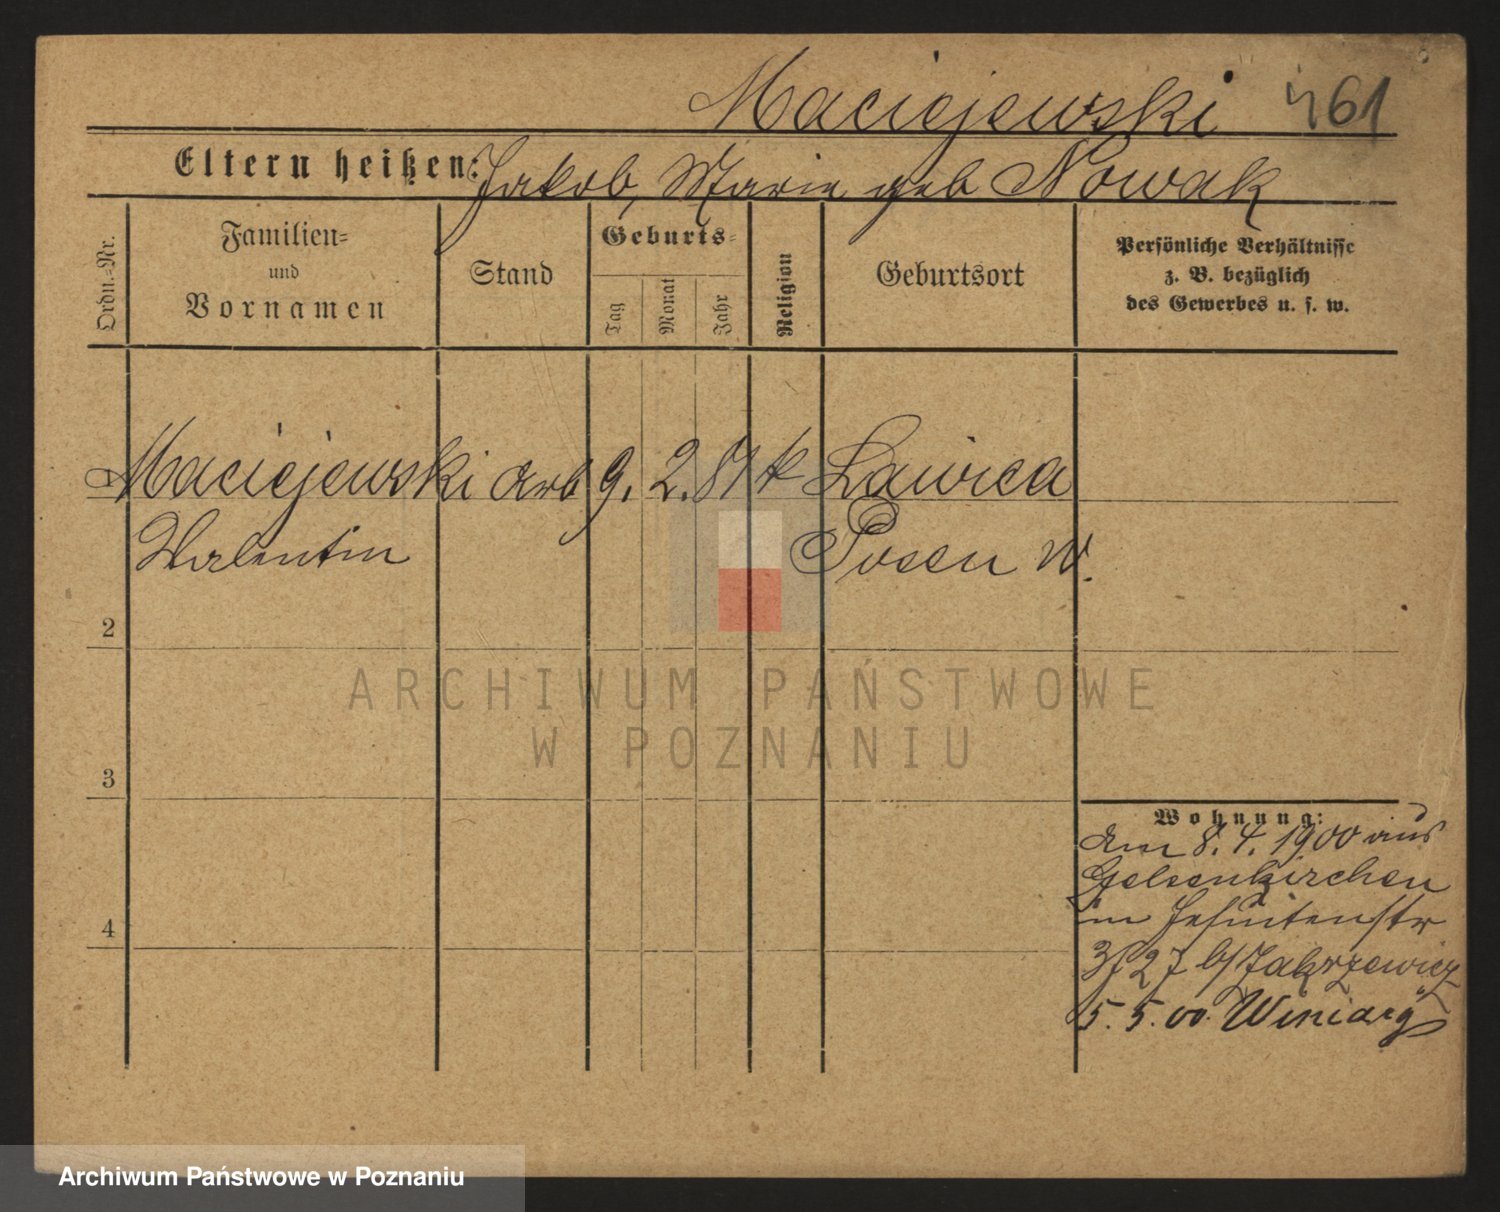 Maciejewski 461
Eltern heißen: Jakob, Marie geb Nowak
Ordn.-Nr.
Familien-
und
Vornamen
Stand
Geburts-
Tag
Monat
Jahr
Religion
Geburtsort
Persönliche Verhältnisse
z. B. bezüglich
des Gewerbes u. s. w.
1 Maciejewski Arb 9. 2. 81 k Lawica
Valentin Posen W.
2
ARCHIWUM PAŃSTWOWE
W POZNANIU
3
Wohnung:
am 8. 4. 1900 aus
Gelsenkirchen
in Jesuitenstr
4
27 b/Zakrzewicz
5. 5. 00. Winiary
Archiwum Państwowe w Poznaniu